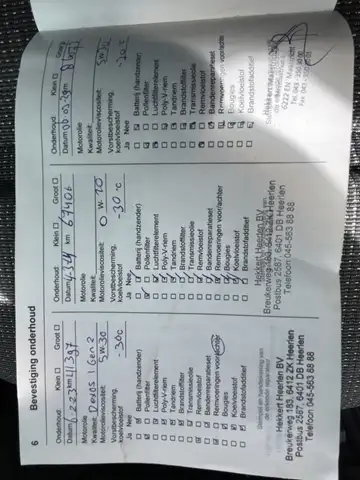 6 Bevestiging onderhoud
Onderhoud: Klein ☐ Groot ☐
Datum km
Motorolie
Kwaliteit: Dexos 1 Gen 2
Motorolieviscositeit: 5W30
Vorstbescherming,
koelvloeistof -30c
Ja Nee
Batterij (handzender)
Pollenfilter
Luchtfilterelement
Poly-V-riem
Tandriem
Brandstoffilter
Transmissieolie
Remvloeistof
Bandenreparatieset
Remvoeringen voor/achter
Bougies
Koelvloeistof
Brandstofadditief
Hekkert Heerlen BV
Breukerweg 183, 6412 ZK Heerlen
Postbus 2587, 6401 DB Heerlen
Telefoon 045-563 88 88
Onderhoud: Klein ☐ Groot ☐
Datum km 67406
Motorolie
Kwaliteit:
Motorolieviscositeit: 0W20
Vorstbescherming,
koelvloeistof -30°C
Ja Nee
Batterij (handzender)
Pollenfilter
Luchtfilterelement
Poly-V-riem
Tandriem
Brandstoffilter
Transmissieolie
Remvloeistof
Bandenreparatieset
Remvoeringen voor/achter
Bougies
Koelvloeistof
Brandstofadditief
Hekkert Heerlen BV
Breukerweg 183, 6412 ZK Heerlen
Postbus 2587, 6401 DB Heerlen
Telefoon 045-563 88 88
Onderhoud: Klein ☐ Groot
Datum km
Motorolie
Kwaliteit:
Motorolieviscositeit: 5W30
Vorstbescherming,
koelvloeistof -30°C
Ja Nee
Batterij (handzender)
Pollenfilter
Luchtfilterelement
Poly-V-riem
Tandriem
Brandstoffilter
Transmissieolie
Remvloeistof
Bandenreparatieset
Remvoeringen voor/achter
Bougies
Koelvloeistof
Brandstofadditief